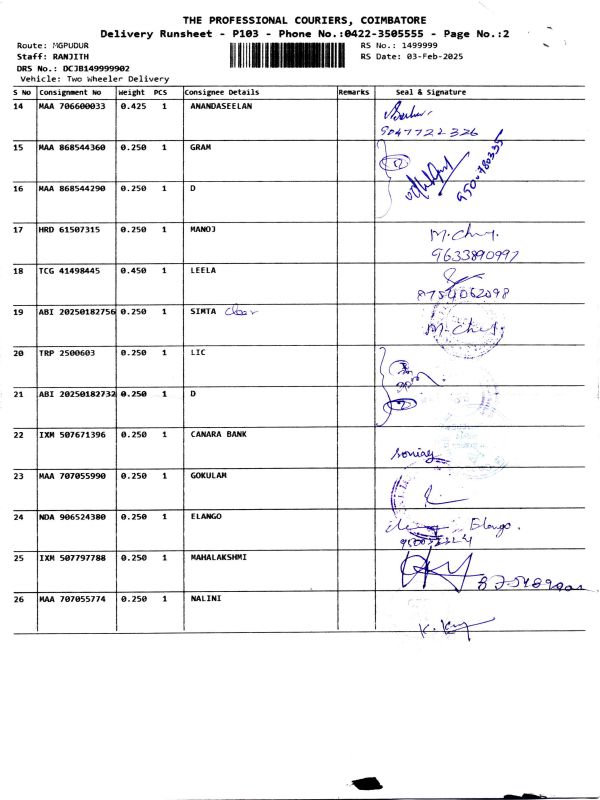 THE PROFESSIONAL COURIERS, COIMBATORE
Delivery Runsheet - P103 - Phone No.:0422-3505555 - Page No.:2
Route: MGPUDUR
RS No.: 1499999
Staff: RANJITH
RS Date: 03-Feb-2025
DRS No.: DCJB149999902
Vehicle: Two Wheeler Delivery
S No Consignment No Weight PCS Consignee Details Remarks Seal & Signature
14 MAA 706600033 0.425 1 ANANDASEELAN
9047722326
15 MAA 868544360 0.250 1 GRAM
16 MAA 868544290 0.250 1 D
17 HRD 61507315 0.250 1 MANOJ
9633890997
18 TCG 41498445 0.450 1 LEELA
8754062098
19 ABI 20250182756 0.250 1 SIMTA
20 TRP 2500603 0.250 1 LIC
21 ABI 20250182732 0.250 1 D
22 IXM 507671396 0.250 1 CANARA BANK
23 MAA 707055990 0.250 1 GOKULAM
24 NDA 906524380 0.250 1 ELANGO
Elango.
25 IXM 507797788 0.250 1 MAHALAKSHMI
26 MAA 707055774 0.250 1 NALINI